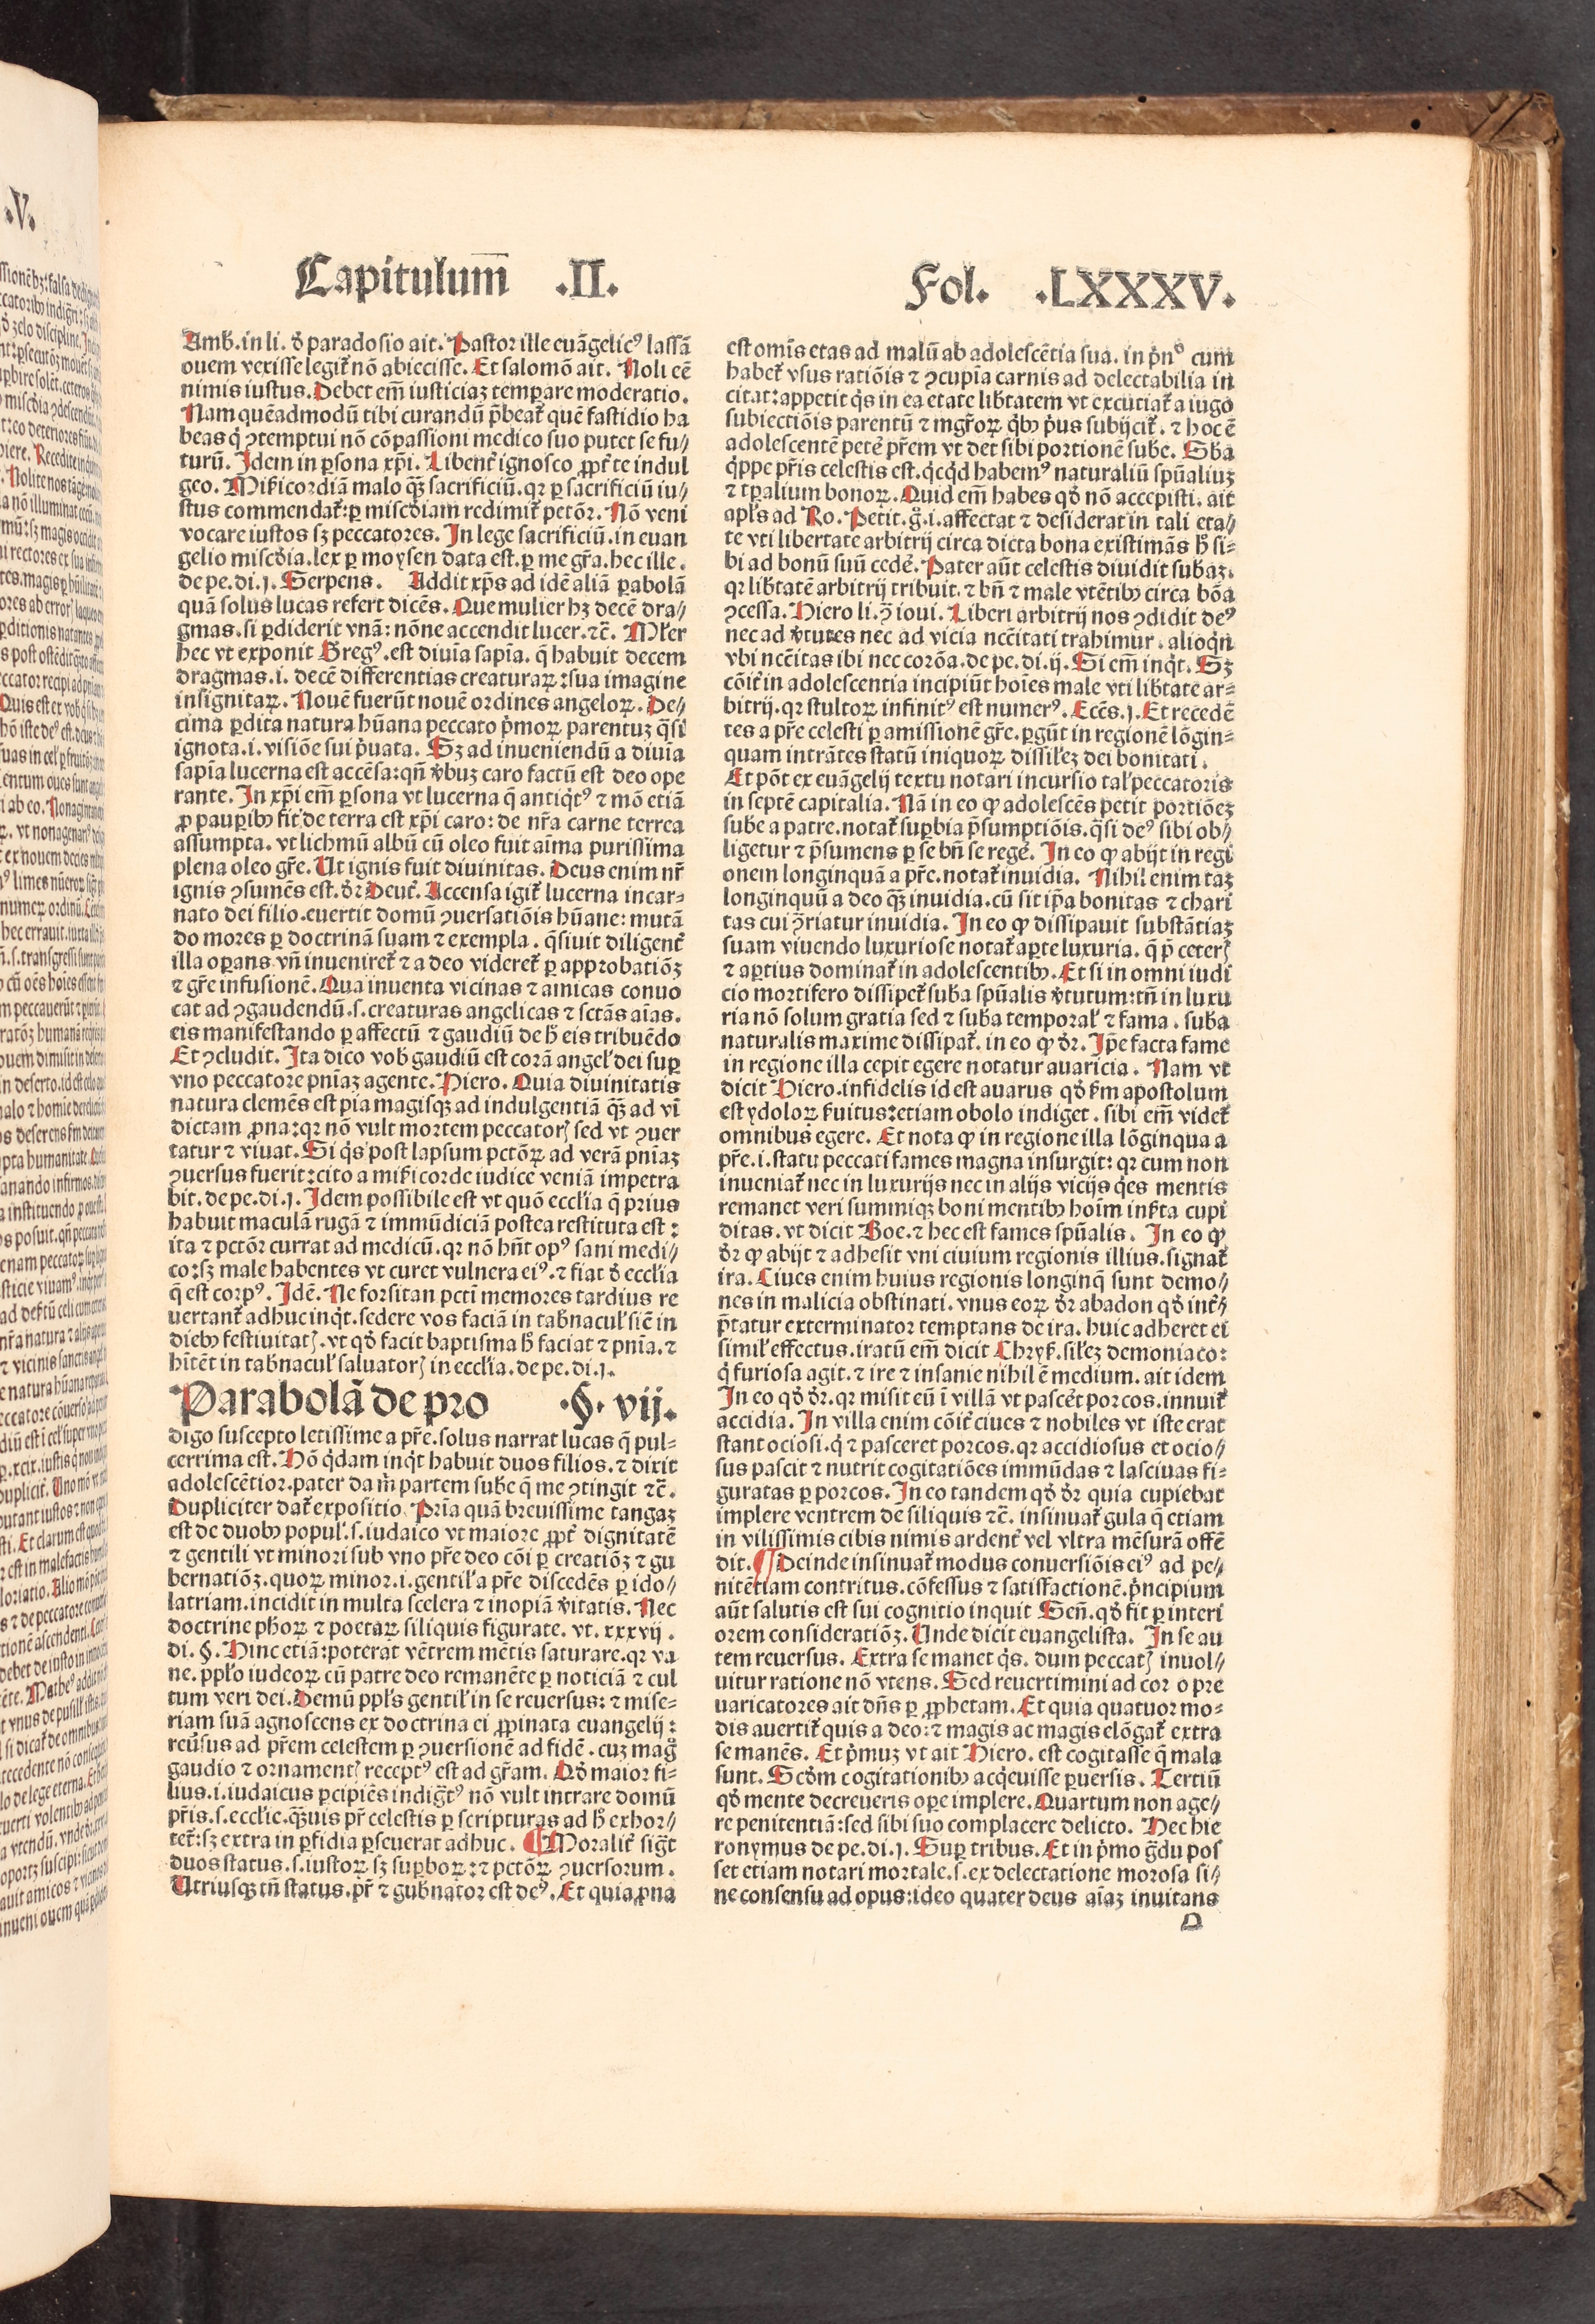 Capitulum̅ .II.
Fol. .LXXXV.
Amb̅. in li. đ paradosio ait. Pastor ille euãgelicꝰ lassã
ouem vexisse legit̃ nõ abiecisse. Et salomõ ait. Noli eē
nimis iustus. Debet em̅ iusticiaꝫ temꝑare moderatio.
Nam quēadmodũ tibi curandũ p̃beat̃ quē fastidio ha
beas q̇ ꝯtemptui nõ cõpassioni medico suo putet se fu⸗
turũ. Idem in ꝑsona xp̃i. Libent̃ ignosco ꝓpt̃ te indul
geo. Mi̅icordiã malo q̃ꝫ sacrificiũ. qꝛ ꝑ sacrificiũ iu⸗
stus commendat̃: ꝑ misc̃diam redimit̃ petõꝛ. Nõ veni
vocare iustos sꝫ peccatores. In lege sacrificiũ. in euan
gelio misc̃dia. lex ꝑ moysen data est. ꝑ me gr̃a. hec ille.
de pe. di. j. Serpens. Addit xp̃s ad idē aliã ꝑabolã
quã solus lucas refert dicēs. Que mulier hꝫ decē dra⸗
gmas. si ꝑdiderit vnã: nõne accendit lucer. ⁊c̃. Ml̃er
hec vt exponit Gregꝰ. est diuĩa sapĩa. q̃ habuit decem
dragmas. i. decē differentias creaturaꝝ: sua imagine
insignitaꝝ. Nouē fuerũt nouē ordines angeloꝝ. De⸗
cima ꝑdita natura hũana peccato p̃moꝝ parentuꝫ q̃si
ignota. i. visiõe sui p̃uata. Sꝫ ad inueniendũ a diuĩa
sapĩa lucerna est accēsa: qñ v̾buꝫ caro factũ est deo ope
rante. In xp̃i em̅ ꝑsona vt lucerna q̃ antiq̇tꝰ ⁊ mõ etiã
ꝓ pauꝑibꝰ fit de terra est xp̃i caro: de nr̃a carne terrea
assumpta. vt lichmũ albũ cũ oleo fuit aĩma purissima
plena oleo gr̃e. Ut ignis fuit diuinitas. Deus enim nr̃
ignis ꝯsumēs est. đꝛ Deut̃. Accensa igit̃ lucerna incar⸗
nato dei filio. euertit domũ ꝯuersatiõis hũane: mutã
do mores ꝑ doctrinã suam ⁊ exempla. q̃siuit diligent̃
illa oꝑans vñ inueniret̃ ⁊ a deo videret̃ ꝑ approbatiõꝫ
⁊ gr̃e infusionē. Qua inuenta vicinas ⁊ amicas conuo
cat ad ꝯgaudendũ. s. creaturas angelicas ⁊ sctãs aĩas.
eis manifestando ꝑ affectũ ⁊ gaudiũ de h̾ eis tribuēdo
Et ꝯcludit. Ita dico vob̾ gaudiũ est corã angel̾ dei suꝑ
vno peccatore pnĩaꝫ agente. Hiero. Quia diuinitatis
natura clemēs est pia magisqꝫ ad indulgentiã q̃ꝫ ad vĩ
dictam ꝓna: qꝛ nõ vult mortem peccator̾ sed vt ꝯuer
tatur ⁊ viuat. Si q̇s post lapsum pctõꝝ ad verã pnĩaꝫ
ꝯuersus fuerit: cito a mi̅icorde iudice veniã impetra
bit. de pe. di. j. Idem possibile est vt quõ eccl̾ia q̃ prius
habuit maculã rugã ⁊ immũdiciã postea restituta est:
ita ⁊ pctõꝛ currat ad medicũ. qꝛ nõ hñt opꝰ sani medi⸗
co: sꝫ male habentes vt curet vulnera eiꝰ. ⁊ fiat đ eccl̾ia
q̃ est corpꝰ. Idē. Ne forsitan pctĩ memores tardius re
uertant̃ adhuc inq̇t. sedere vos faciã in tab̾nacul̾ sic̃ in
diebꝰ festiuitat̾. vt qđ facit baptisma h̾ faciat ⁊ pnĩa. ⁊
hitēt in tab̾nacul̾ saluator̾ in eccl̾ia. de pe. di. j.
Parabolã de pro .§. vij.
digo suscepto letissime a pr̃e. solus narrat lucas q̃ pul⸗
cerrima est. Hõ q̇dam inq̇t habuit duos filios. ⁊ dixit
adolescētior. pater da m̃ partem sube q̃ me ꝯtingit ⁊c̃.
Dupliciter dat̃ expositio. Pr̃ia quã breuissime tangaꝫ
est de duobꝰ popul̾. s. iudaico vt maiore ꝓpt̃ dignitatē
⁊ gentili vt minori sub vno pr̃e deo cõi ꝑ creatiõꝫ ⁊ gu
bernatiõꝫ. quoꝝ minor. i. gentil̾ a pr̃e discedēs ꝑ ido⸗
latriam. incidit in multa scelera ⁊ inopiã v̾itatis. Nec
doctrine phoꝝ ⁊ poetaꝝ siliquis figurate. vt. xxxvij.
di. §. Hinc etiã: poterat vētrem mētis saturare. qꝛ va
ne. pp̾lo iudeoꝝ cũ patre deo remanēte ꝑ noticiã ⁊ cul
tum veri dei. Demũ pp̾ls gentil̾ in se reuersus: ⁊ mise⸗
riam suã agnoscens ex doctrina ei ꝓpinata euangelij:
reũsus ad pr̃em celestem ꝑ ꝯuersionē ad fidē. cuꝫ mag̾
gaudio ⁊ ornament̾ receptꝰ est ad gr̃am. Qđ maior fi⸗
lius. i. iudaicus ꝑcipiēs indig̃tꝰ nõ vult intrare domũ
pr̃is. s. ecclie. q̃ꝫuis pr̃ celestis ꝑ scripturas ad h̾ exhor⸗
tet̃: sꝫ extra in ꝑfidia ꝑseuerat adhuc. ¶ Moralit̃ sig̃t
duos status. s. iustoꝝ sꝫ suꝑboꝝ: ⁊ pctõꝝ ꝯuersorum.
Utriusqꝫ tñ status. pr̃ ⁊ gub̾nator est deꝰ. Et quia ꝓna
est omĩs etas ad malũ ab adolescētia sua. in p̃nº cum
habet̃ vsus ratiõis ⁊ ꝯcupĩa carnis ad delectabilia in
citat: appetit q̇s in ea etate lib̾tatem vt excutiat̃ a iugo
subiectiõis parentũ ⁊ mgr̃oꝝ q̇bꝰ p̃us subijcit̃. ⁊ hoc ē
adolescentē petē pr̃em vt det sibi portionē sube. Sba
q̇ppe pr̃is celestis est. q̇cq̇d habemꝰ naturaliũ spũaliuꝫ
⁊ tp̾alium bonoꝝ. Quid em̅ habes qđ nõ accepisti. ait
apl̾s ad Ro. Petit. g̾. i. affectat ⁊ desiderat in tali eta⸗
te vti libertate arbitrij circa dicta bona existimãs h̾ si⸗
bi ad bonũ suũ cedē. Pater aũt celestis diuidit subaꝫ.
qꝛ lib̾tatē arbitrij tribuit. ⁊ bñ ⁊ male vtētibꝰ circa bõa
ꝯcessa. Hiero li. ꝯ̃ ioui. Liberi arbitrij nos ꝯdidit deꝰ
nec ad v̾tutes nec ad vicia ncc̃itati trahimur. alioq̇n
vbi ncc̃itas ibi nec corõa. de pe. di. ij. Si em̅ inq̇t. Sꝫ
cõit̃ in adolescentia incipiũt hoĩes male vti lib̾tate ar⸗
bitrij. qꝛ stultoꝝ infinitꝰ est numerꝰ. Ecc̃s. j. Et recedē
tes a pr̃e celesti ꝑ amissionē gr̃e. ꝑgũt in regionē lõgin⸗
quam intrãtes statũ iniquoꝝ dissil̾eꝫ dei bonitati.
Et põt ex euãgelij textu notari incursio tal̾ peccatoris
in septē capitalia. Nã in eo ꝙ adolescēs petit portiõeꝫ
sube a patre. notat̃ suꝑbia p̃sumptiõis. q̃si deꝰ sibi ob⸗
ligetur ⁊ p̃sumens ꝑ se bñ se regē. In eo ꝙ abijt in regi
onem longinquã a pr̃e. notat̃ inuidia. Nihil enim taꝫ
longinquũ a deo q̃ꝫ inuidia. cũ sit ip̃a bonitas ⁊ chari
tas cui ꝯ̃riatur inuidia. In eo ꝙ dissipauit substãtiaꝫ
suam viuendo luxuriose notat̃ aꝑte luxuria. q̃ p̃ ceter̾
⁊ aptius dominat̃ in adolescentibꝰ. Et si in omni iudi
cio mortifero dissipet̃ suba spũalis v̾tutum: tñ in luxu
ria nõ solum gratia sed ⁊ suba temporal̾ ⁊ fama. suba
naturalis maxime dissipat̃. in eo ꝙ đꝛ. Ip̃e facta fame
in regione illa cepit egere notatur auaricia. Nam vt
dicit Hiero. infidelis id est auarus qđ s̾m apostolum
est ydoloꝝ s̾uitus: etiam obolo indiget. sibi em̅ videt̃
omnibus egere. Et nota ꝙ in regione illa lõginqua a
pr̃e. i. statu peccati fames magna insurgit: qꝛ cum non
inueniat̃ nec in luxurijs nec in alijs vicijs q̇es mentis
remanet veri summiqꝫ boni mentibꝰ hoĩm ins̾ta cupi
ditas. vt dicit Boe. ⁊ hec est fames spũalis. In eo ꝙ
đꝛ ꝙ abijt ⁊ adhesit vni ciuium regionis illius. signat̃
ira. Ciues enim huius regionis longinq̃ sunt demo⸗
nes in malicia obstinati. vnus eoꝝ đꝛ abadon qđ int̾⸗
p̃tatur exterminator temptans de ira. huic adheret ei
simil̾ effectus. iratũ em̅ dicit Chryẜ. sil̾eꝫ demoniaco:
q̇ furiosa agit. ⁊ ire ⁊ insanie nihil ē medium. ait idem
In eo qđ đꝛ. qꝛ misit eũ ĩ villã vt pascẽt porcos. innuit̃
accidia. In villa enim cõit̃ ciues ⁊ nobiles vt iste erat
stant ociosi. q̇ ⁊ pasceret porcos. qꝛ accidiosus et ocio⸗
sus pascit ⁊ nutrit cogitatiões immũdas ⁊ lasciuas fi⸗
guratas ꝑ porcos. In eo tandem qđ đꝛ quia cupiebat
implere ventrem de siliquis ⁊c̃. insinuat̃ gula q̃ etiam
in vilissimis cibis nimis ardent̃ vel vltra mēsurã offē
dit. ¶ Deinde insinuat̃ modus conuersiõis eiꝰ ad pe⸗
nitētiam contritus. cõfessus ⁊ satisfactionē. p̃ncipium
aũt salutis est sui cognitio inquit Señ. qđ fit ꝑ interi
orem consideratiõꝫ. Unde dicit euangelista. In se au
tem reuersus. Extra se manet q̇s. dum peccat̾ inuol⸗
uitur ratione nõ vtens. Sed reuertimini ad cor o pre
uaricatores ait dñs ꝑ ꝓphetam. Et quia quatuor mo⸗
dis auertit̃ quis a deo: ⁊ magis ac magis elõgat̃ extra
se manēs. Et p̃muꝫ vt ait Hiero. est cogitasse q̃ mala
sunt. Scđm cogitationibꝰ acq̇euisse ꝑuersis. Tertiũ
qđ mente decreueris oꝑe implere. Quartum non age⸗
re penitentiã: sed sibi suo complacere delicto. Hec hie
ronymus de pe. di. j. Suꝑ tribus. Et in p̃mo g̃du pos
set etiam notari mortale. s. ex delectatione morosa si⸗
ne consensu ad opus: ideo quater deus aĩaꝫ inuitans
D